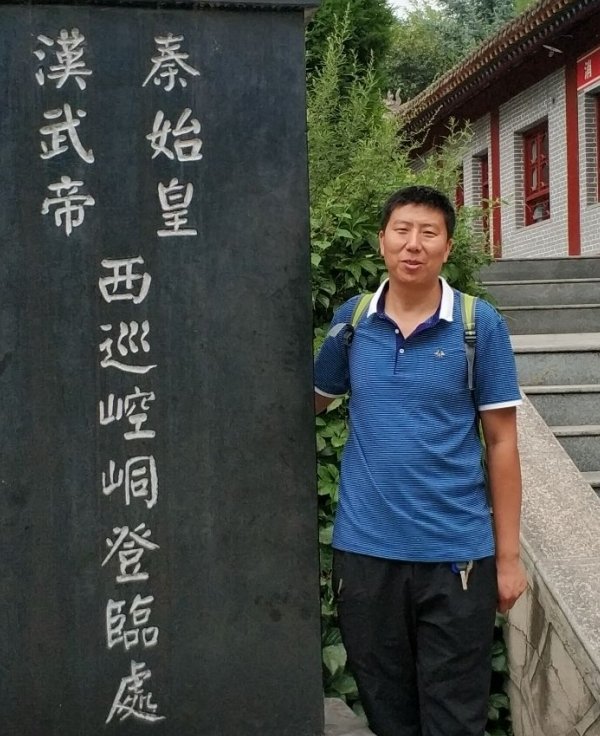 秦始皇
漢武帝
西巡崆峒登臨處